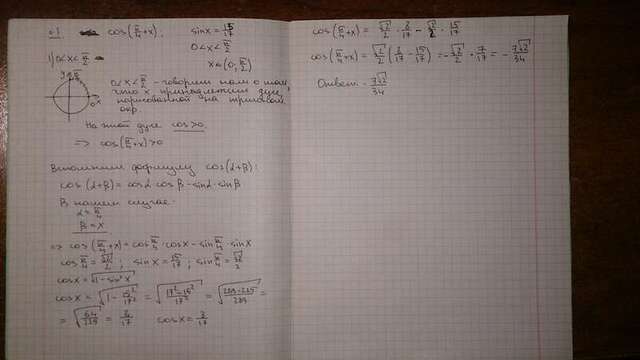 cos(π/4+x), sinx = 15/17
0<x<π/2
1) 0<x<π/2
x∈(0; π/2)
0<x<π/2 - говорит нам о том,
что x принадлежит дуге,
нарисованной на тригоном.
окр.
На этой дуге cos>0
⇒ cos(π/4+x)>0
Вспомним формулу cos(α+β):
cos(α+β) = cosα cosβ - sinα·sinβ
В нашем случае:
α = π/4
β = x
⇒ cos(π/4+x) = cosπ/4·cosx - sinπ/4·sinx
cosπ/4 = √2/2; sinx = 15/17; sinπ/4 = √2/2
cosx = √1-sin²x
cosx = √1-15²/17² = √17²-15²/17² = √289-225/289 =
= √64/289 = 8/17 cosx = 8/17
cos(π/4+x) = √2/2 · 8/17 - √2/2 · 15/17
cos(π/4+x) = √2/2 (8/17 - 15/17) = -√2/2 · 7/17 = -7√2/34
Ответ: -7√2/34